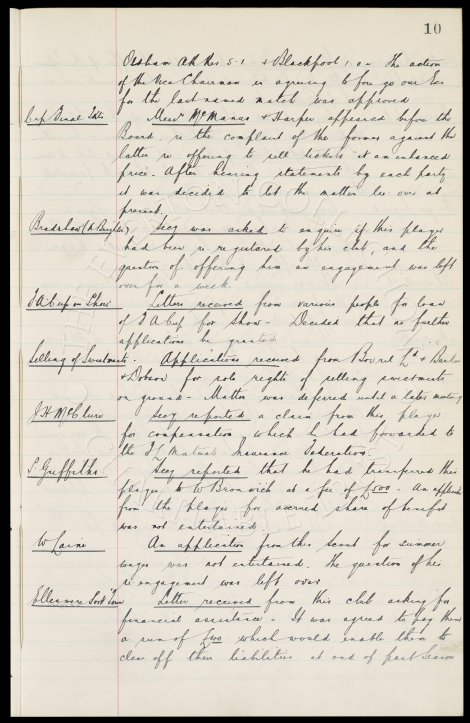 10
Oldham Ath Res 5-1 & Blackpool 1-0 - The action
of the Vice Chairman in agreeing to forego our Exs
for the last named match was approved
Cup Final Tkts Messrs McManus & Harper appeared before the
Board re the complaint of the former against the
latter re offering to sell tickets at an enhanced
price. After hearing statements by each party
it was decided to let the matter lie over at
present.
Bradshaw Secy was asked to enquire if this player
had been re registered by his club, and the
question of offering him an engagement was left
over for a week.
F A Cup on Show Letters received from various people for loan
of F A Cup for Show - Decided that no further
applications be granted
Selling of Sweetmeats. Applications received from Bovril Ld & Barker
& Dobson for sole rights of selling sweetmeats
on ground - Matter was deferred until a later meeting
J H McClure Secy reported a claim from this player
for compensation which he had forwarded to
the F L Mutual Insurance Federation.
S. Griffiths Secy reported that he had transferred this
player to W Bromwich at a fee of £500 - An application
from the player for accrued share of benefit
was not entertained.
An application from this scout for summer
wages was not entertained. The question of his
re engagement was left over
Ellesmere Port Town Letter received from this club asking for
financial assistance - It was agreed to pay them
a sum of which would enable them to
clear off their liabilities at end of past season